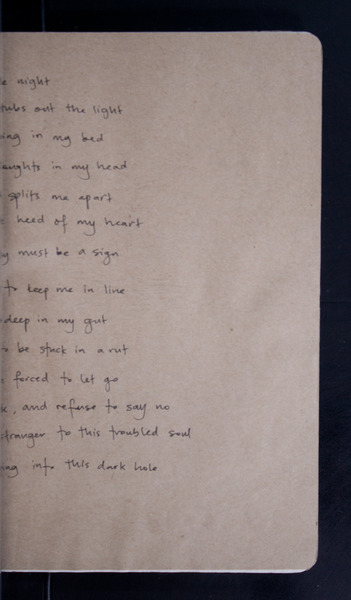 e night
tubs out the light
ing in my bed
oughts in my head
splits me apart
heed of my heart
y must be a sign
to keep me in line
deep in my gut
o be stuck in a rut
forced to let go
k, and refuse to say no
stranger to this troubled soul
ing into this dark hole